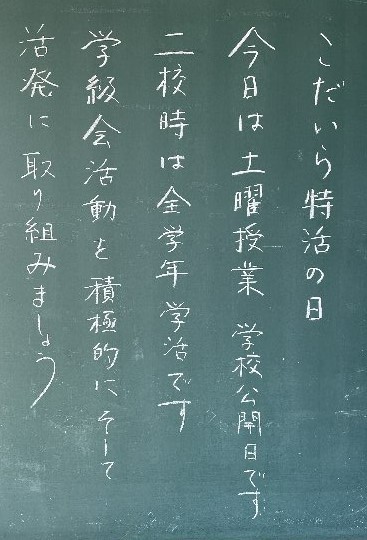 こだいら特活の日
今日は土曜授業 学校公開日です
二校時は全学年学活です
学級会活動を積極的に そして
活発に取り組みましょう